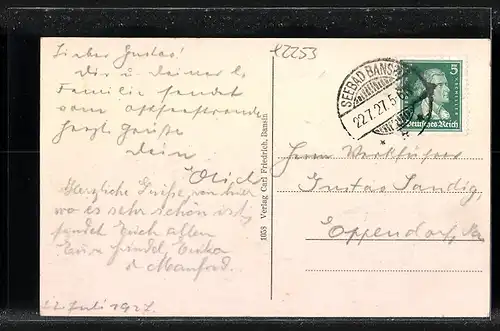 Lieber Gustav!
Dir u. deiner l.
Familie sendet
vom Ostseestrande
herzl. Grüße
Dein
Herzliche Grüsse von hier
wo es sehr schön ist,
sendet Euch allen
Erika
u. Manfred.
22. Juli 1927.
1058 Verlag Carl Friedrich, Bansin
42253
SEEBAD BANSIN
22.7.27.5-6
5
Deutsches Reich
Herrn Werkführer
Gustav Sandig,
Eppendorf, Sa.